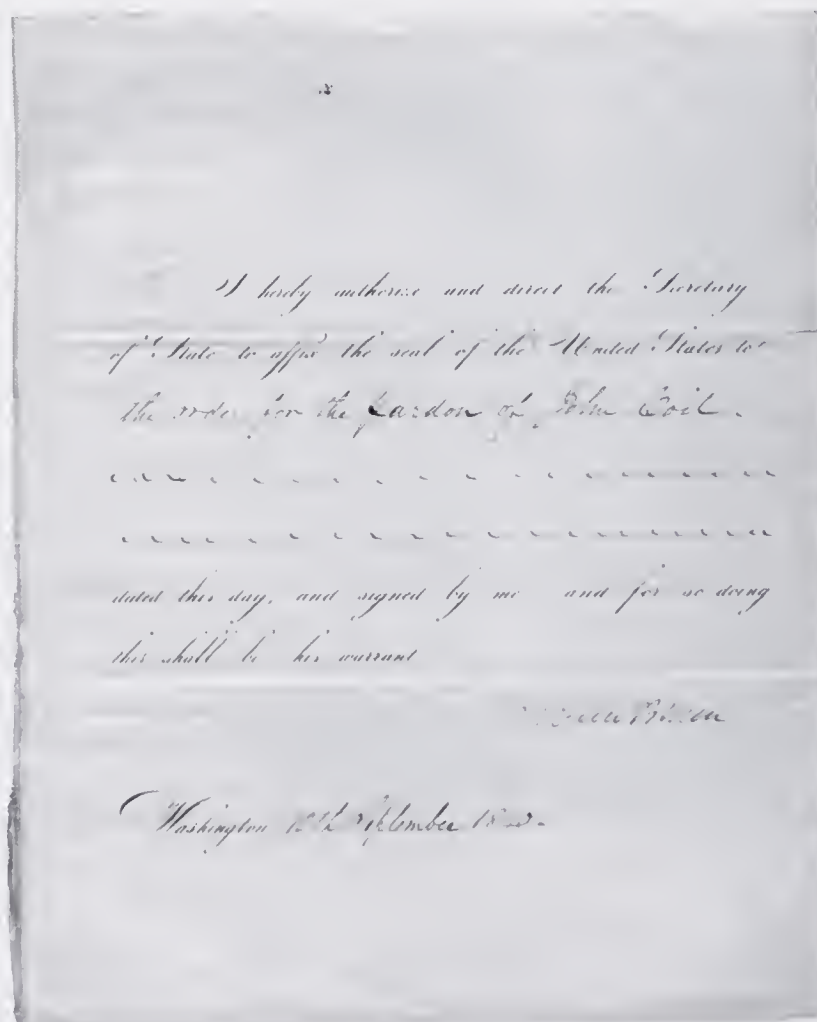 I hereby authorize and direct the Secretary
of State to affix the seal of the United States to
the order for the pardon of John Coil.
dated this day, and signed by me and for so doing
this shall be his warrant
Washington September